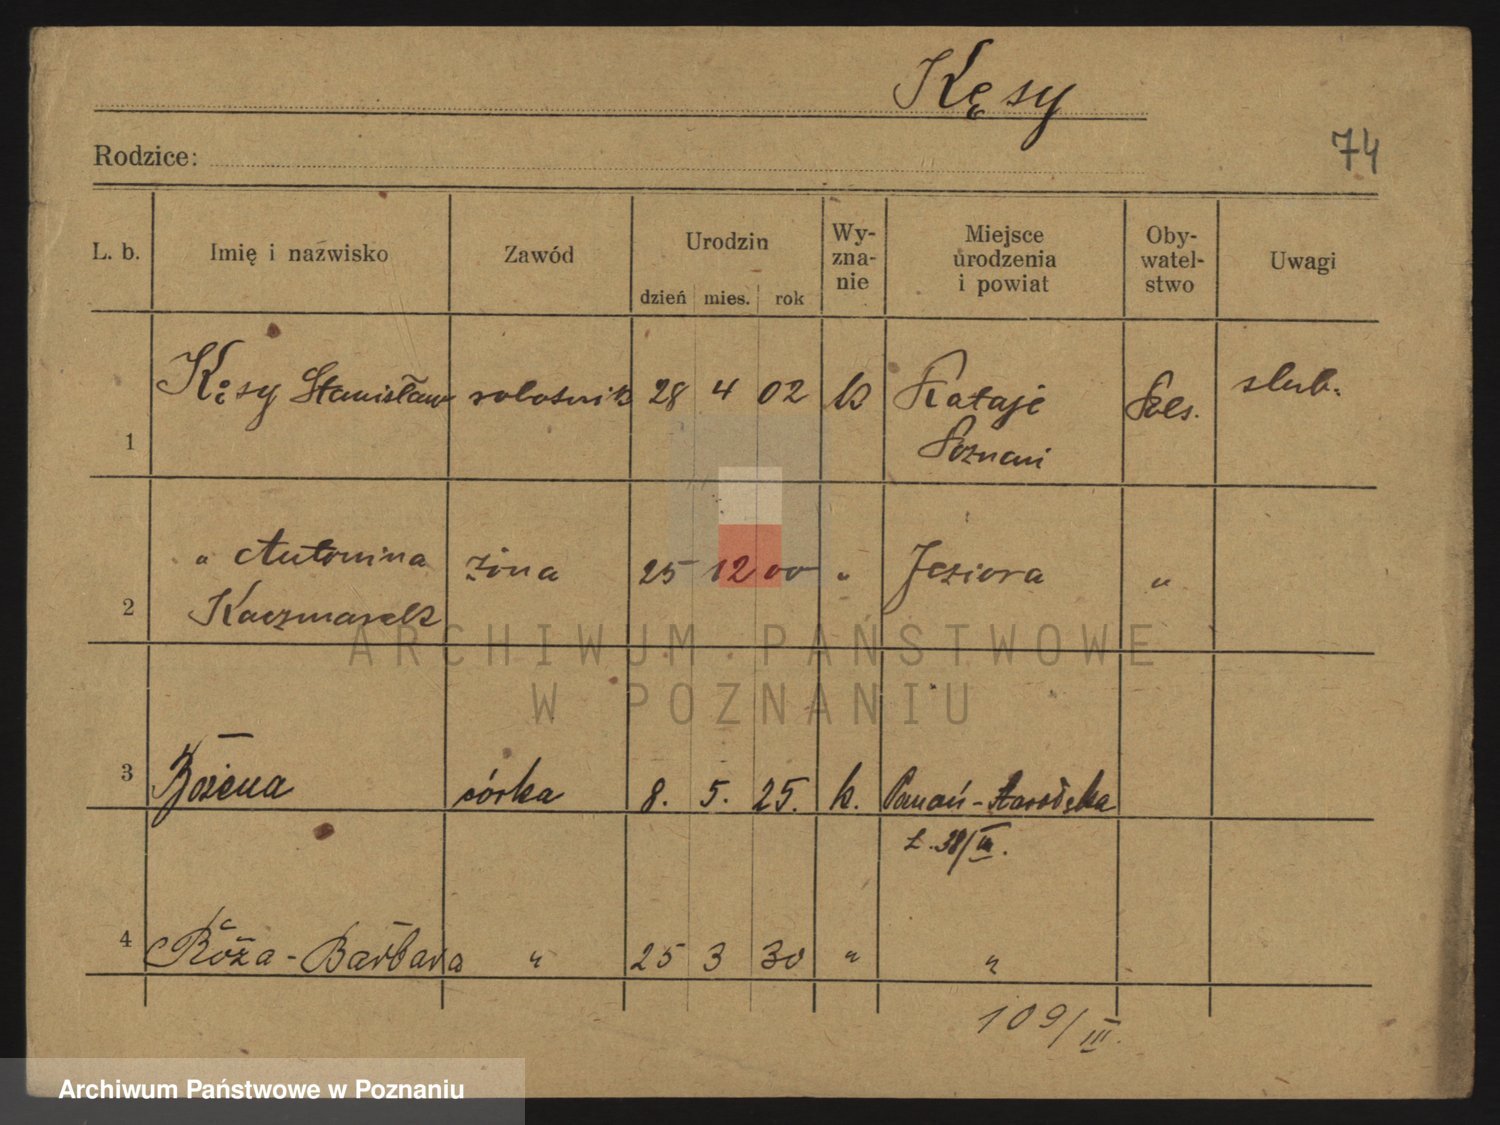 Kęsy
74
Rodzice:
L. b. Imię i nazwisko Zawód Urodzin Wy- Miejsce Oby- Uwagi
zna- urodzenia watel-
nie i powiat stwo
dzień mies. rok
1 Kęsy Stanisław robotnik 28 4 02 k Rataje Pols. slub.
Poznań
2 " Antonina żona 25 12 00 " Jeziora "
Kaczmarek
3 Bożena córka 8. 5. 25. k. Poznań-Starołęka
38/III.
4 Róża-Barbara " 25 3 30 " "
109/III.
ARCHIWUM PAŃSTWOWE
W POZNANIU
Archiwum Państwowe w Poznaniu